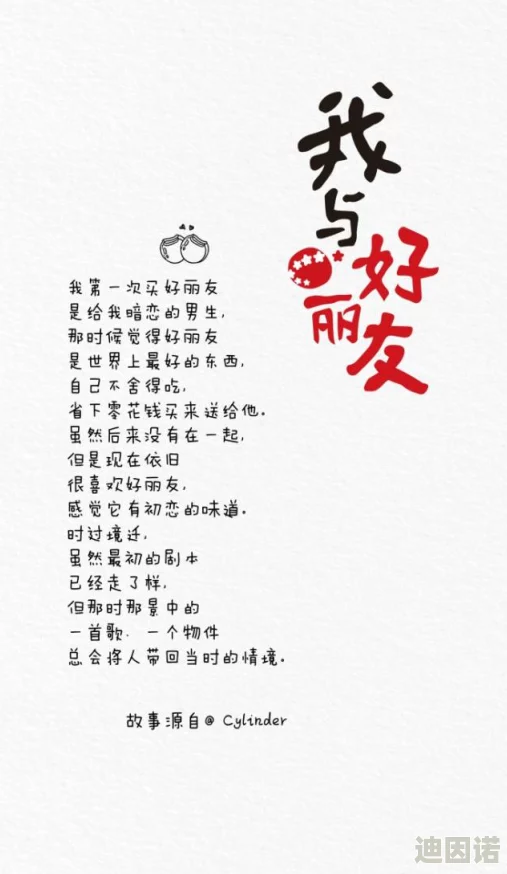 我与
好丽友
我第一次买好丽友
是给我暗恋的男生,
那时候觉得好丽友
是世界上最好的东西,
自己不舍得吃,
省下零花钱买来送给他。
虽然后来没有在一起,
但是现在依旧
很喜欢好丽友,
感觉它有初恋的味道。
时过境迁,
虽然最初的剧本
已经走了样,
但那时那景中的
一首歌. 一个物件
总会将人带回当时的情境。
故事源自@ Cylinder
迪因诺